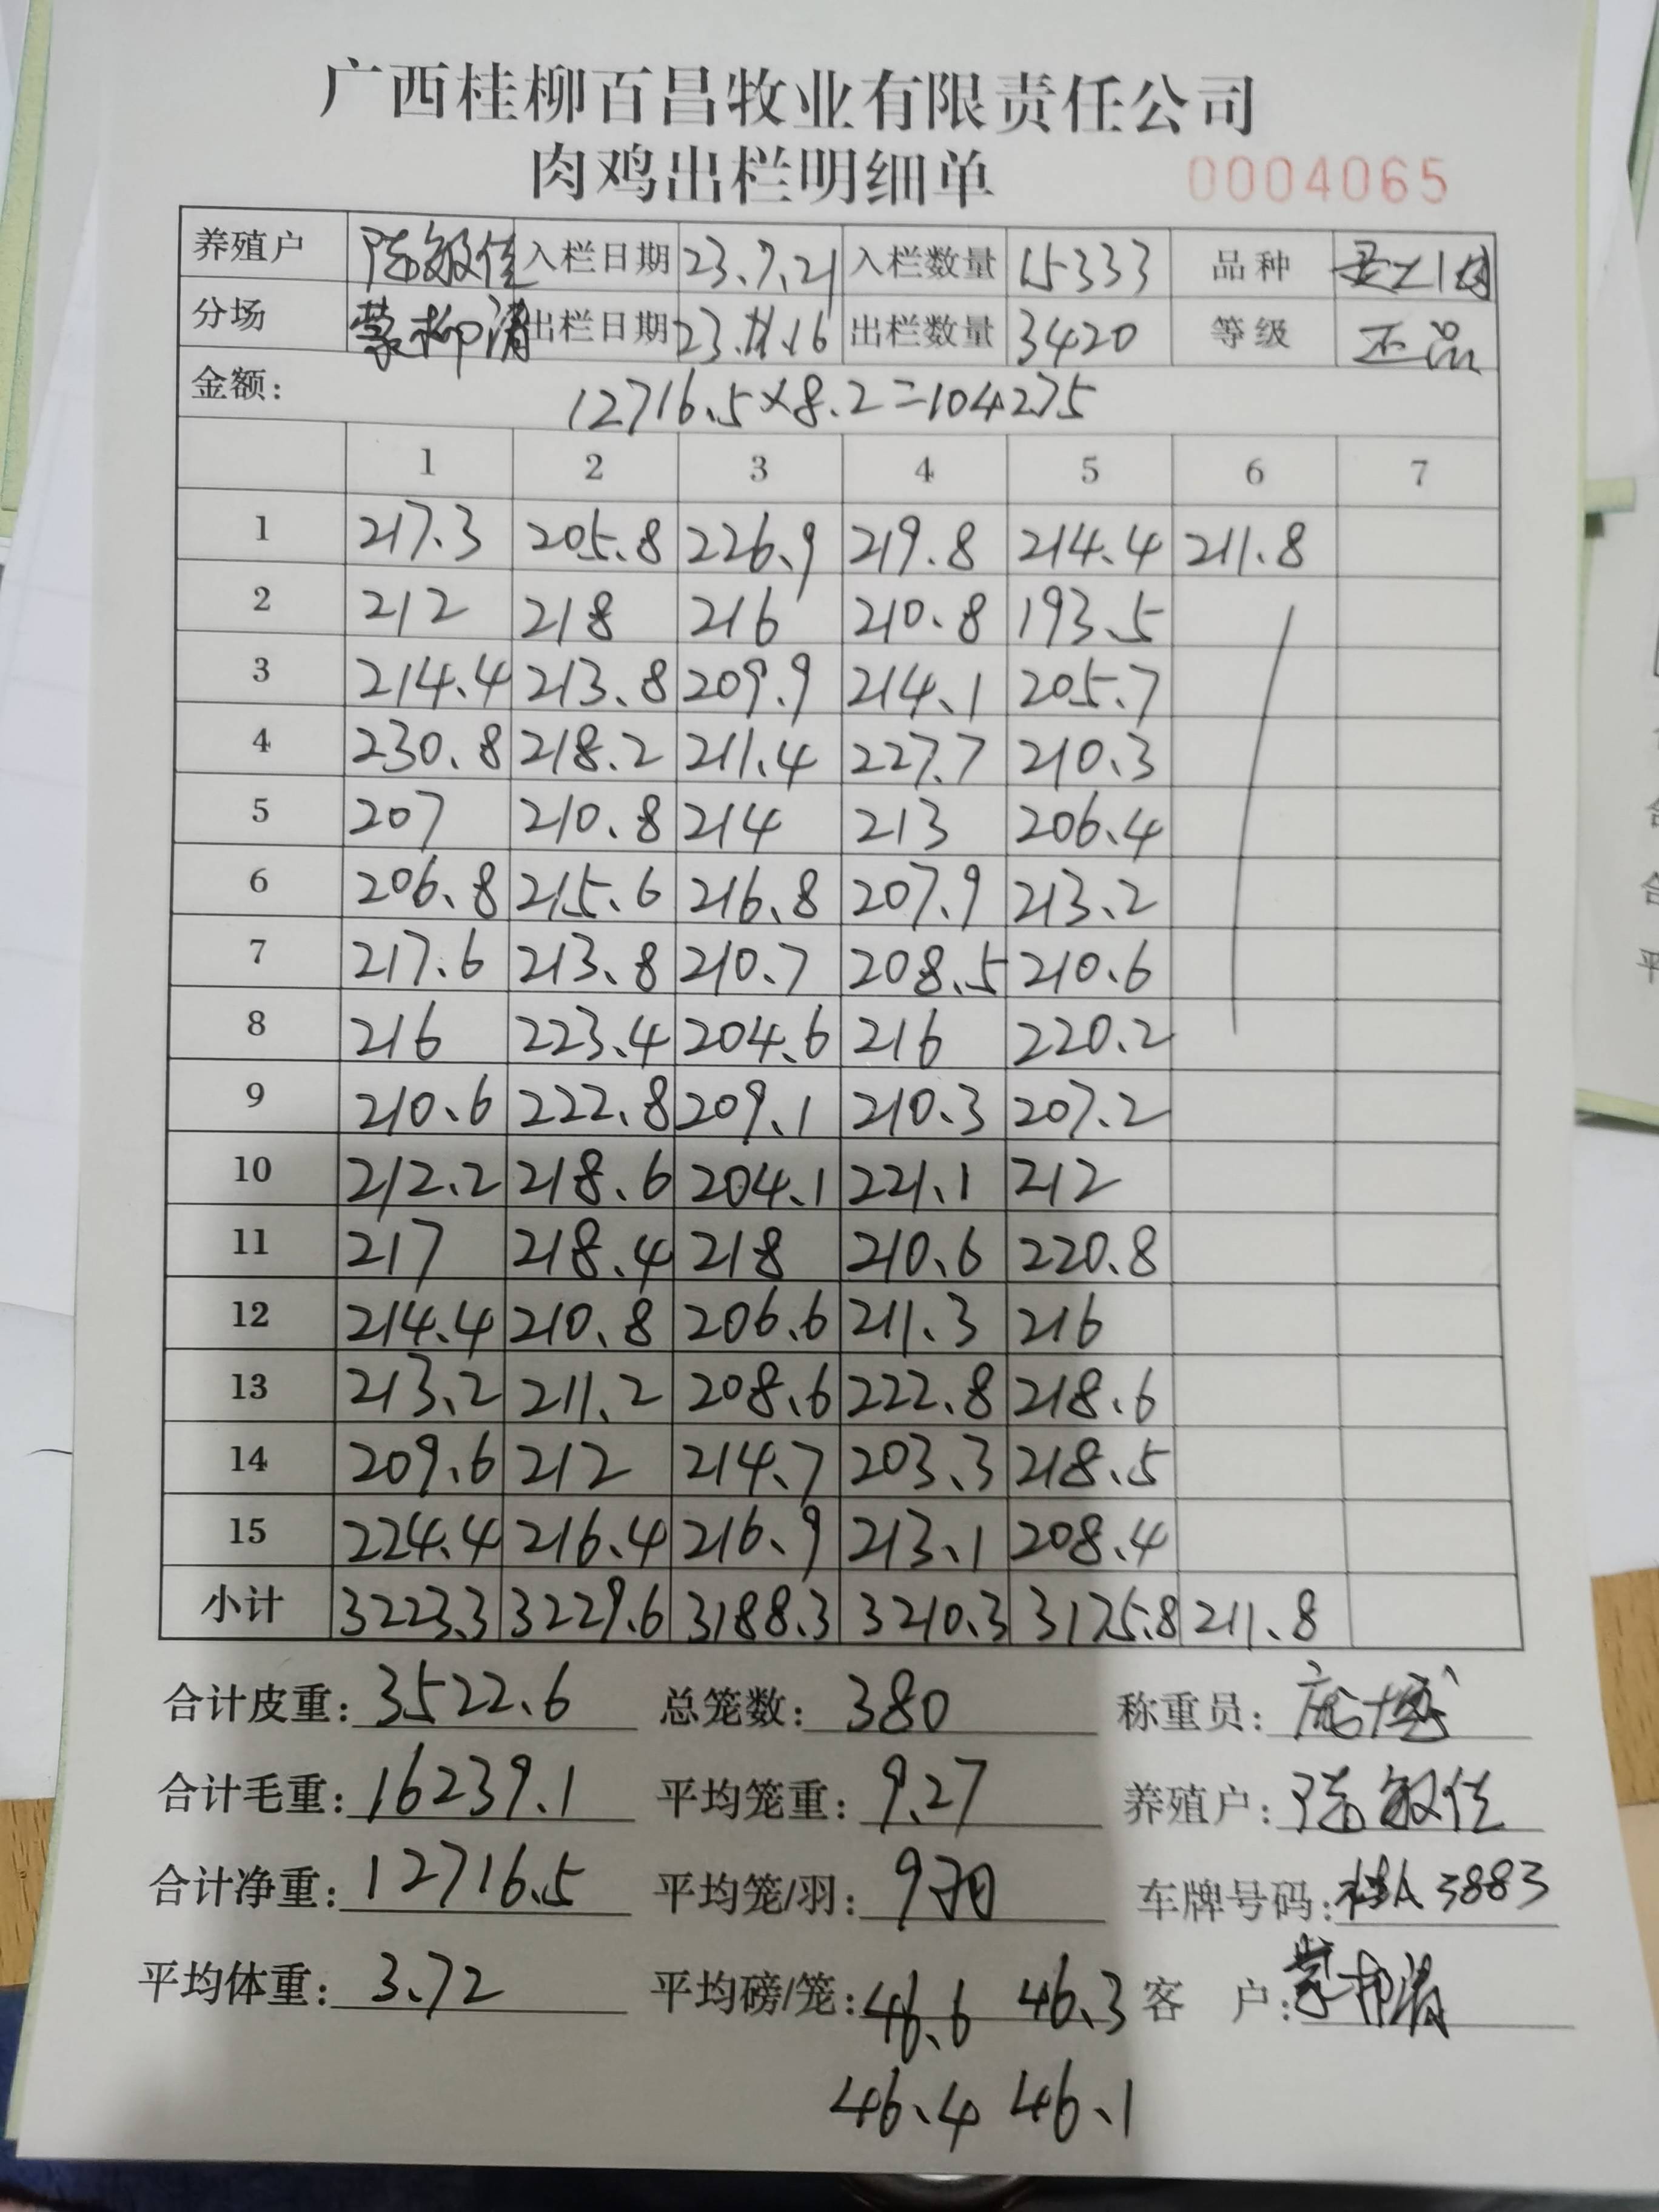 广西桂柳百昌牧业有限责任公司
肉鸡出栏明细单 0004065
养殖户 陈敏佳 入栏日期 23.7.21 入栏数量 15333 品种
分场 蒙柳清 出栏日期 23.11.16 出栏数量 3420 等级 正品
金额: 12716.5×8.2=104275
1 2 3 4 5 6 7
1 217.3 205.8 226.9 219.8 214.4 211.8
2 212 218 216 210.8 193.5
3 214.4 213.8 209.9 214.1 205.7
4 230.8 218.2 211.4 227.7 210.3
5 207 210.8 214 213 206.4
6 206.8 215.6 216.8 207.9 213.2
7 217.6 213.8 210.7 208.5 210.6
8 216 223.4 204.6 216 220.2
9 210.6 222.8 209.1 210.3 207.2
10 212.2 218.6 204.1 221.1 212
11 217 218.4 218 210.6 220.8
12 214.4 210.8 206.6 211.3 216
13 213.2 211.2 208.6 222.8 218.6
14 209.6 212 214.7 203.3 218.5
15 224.4 216.4 216.9 213.1 208.4
小计 3223.3 3229.6 3188.3 3210.3 3175.8 211.8
合计皮重: 3522.6 总笼数: 380 称重员:
合计毛重: 16239.1 平均笼重: 9.27 养殖户: 陈敏佳
合计净重: 12716.5 平均笼/羽: 9羽 车牌号码: 桂A 3883
平均体重: 3.72 平均磅/笼: 46.6 46.3 客 户: 蒙柳清
46.4 46.1